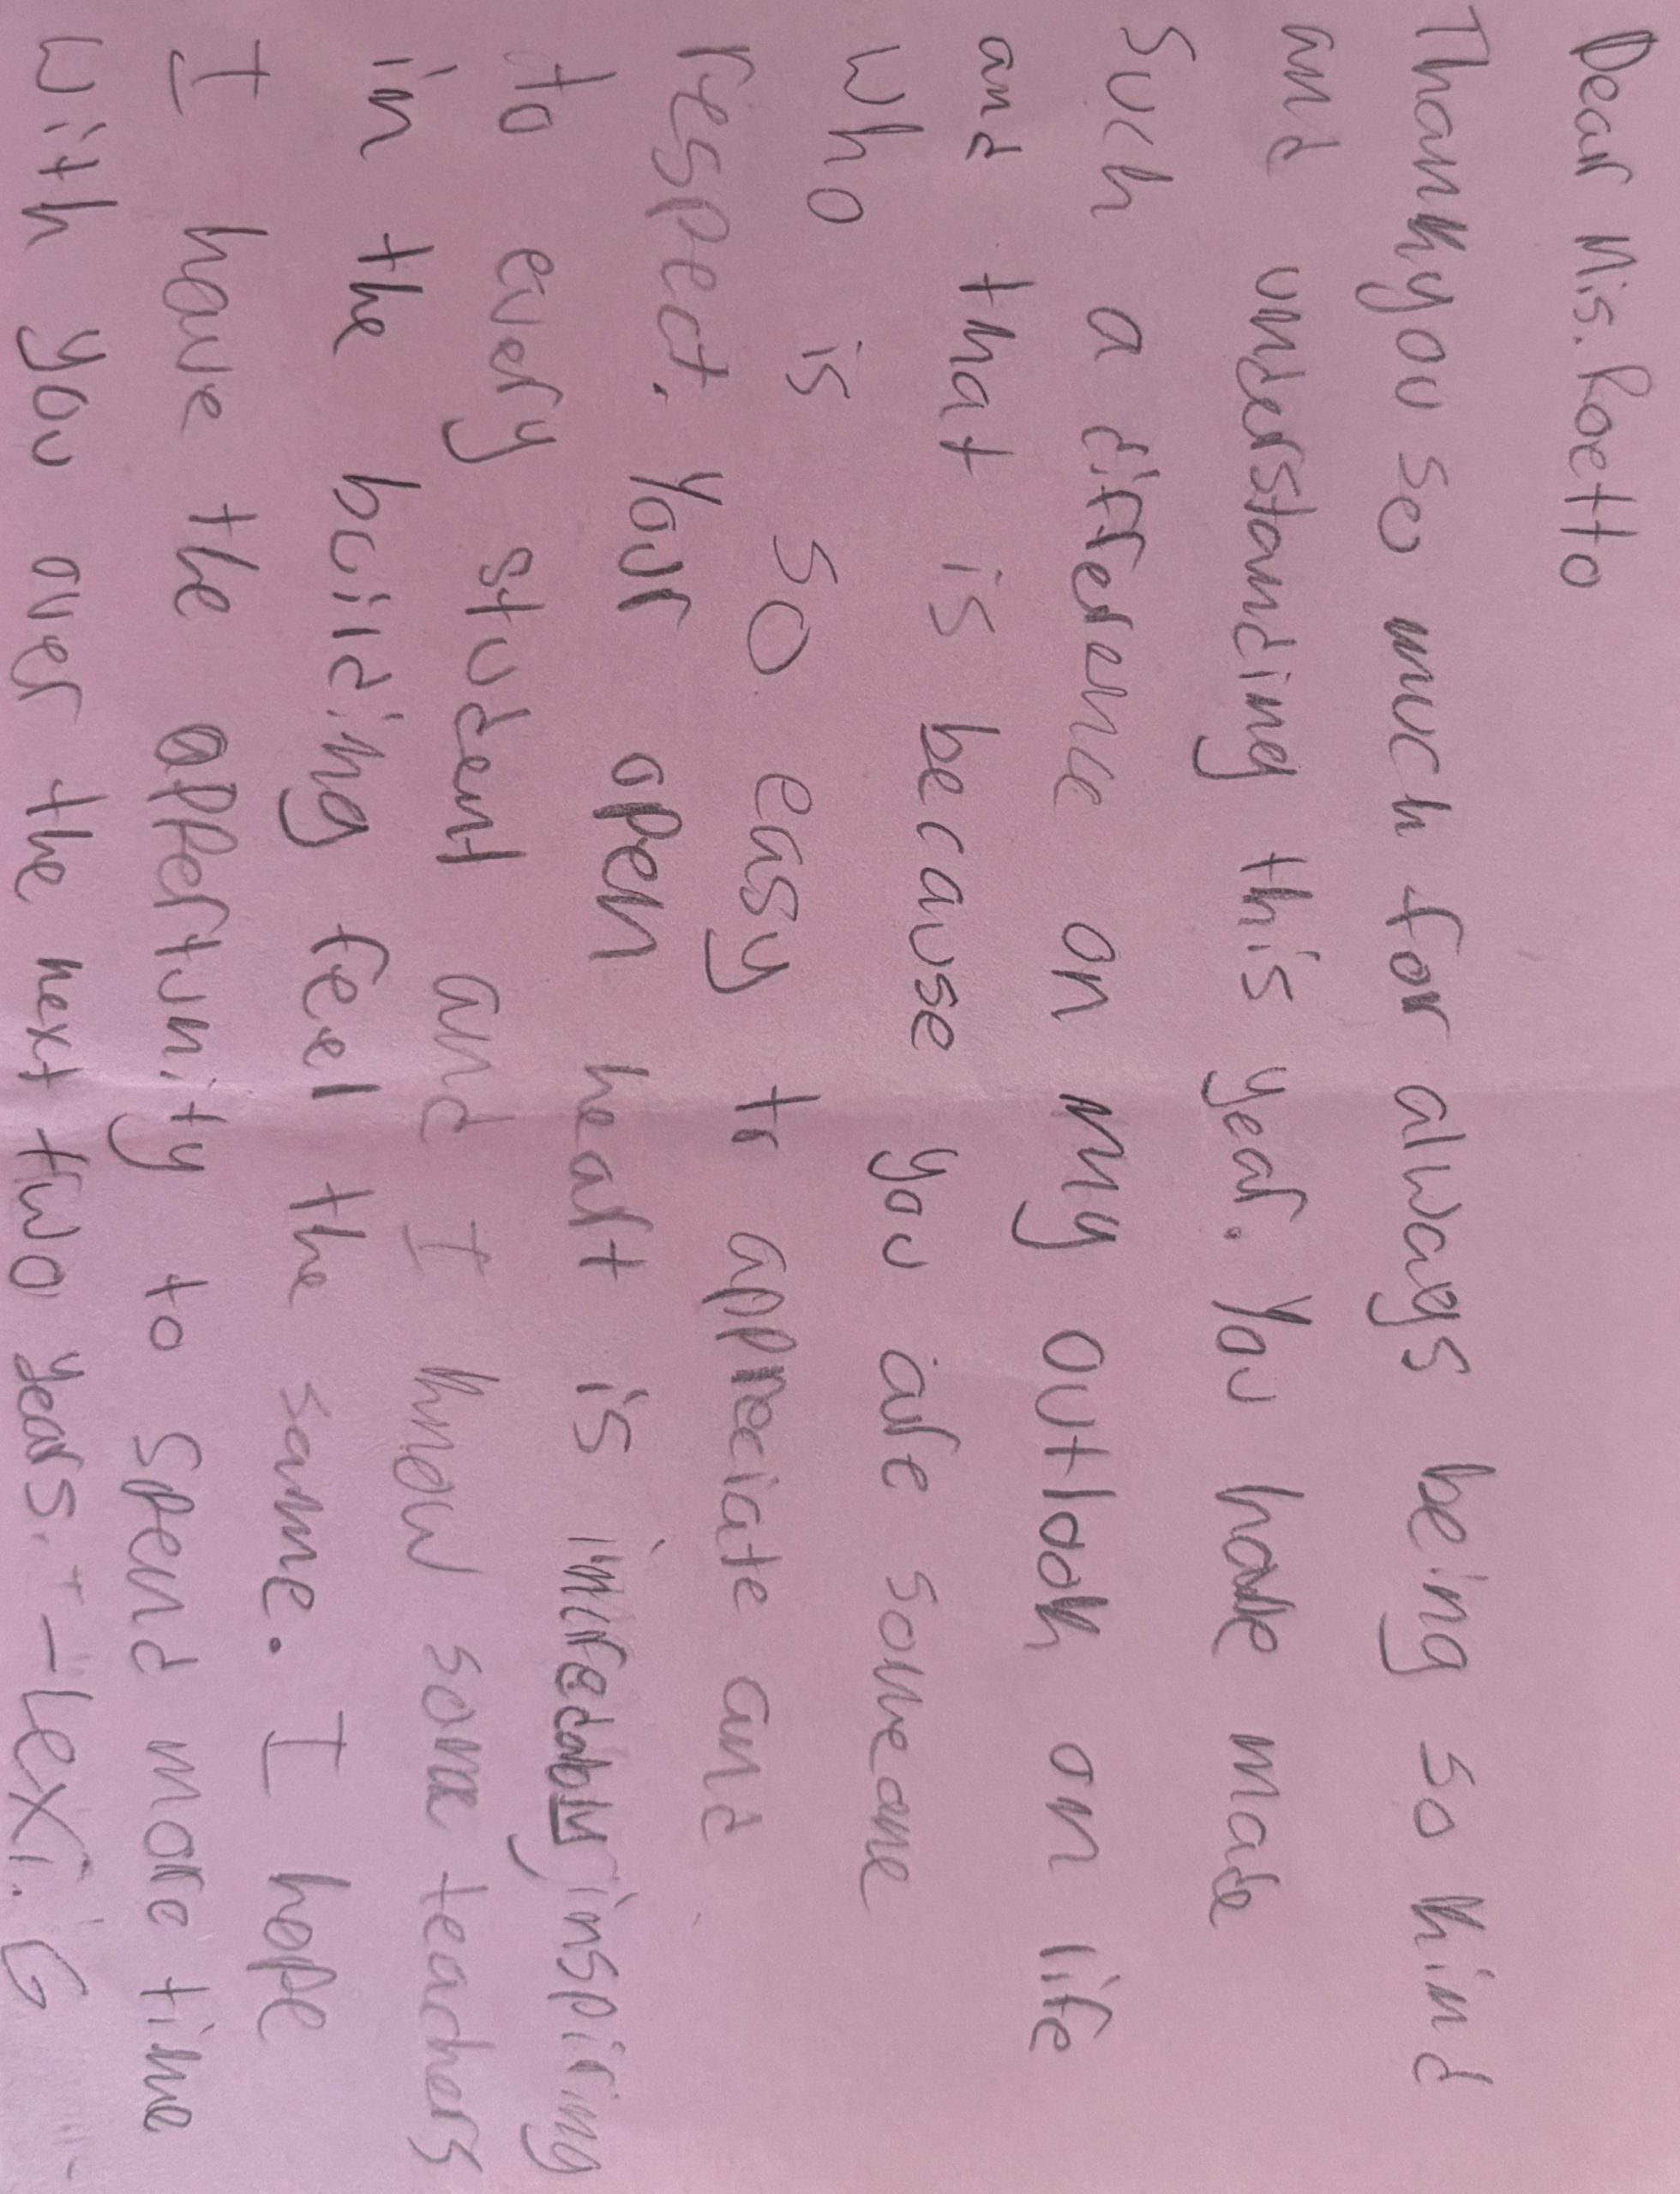 Dear Mis. Roetto
Thankyou so much for always being so kind
and understanding this year. You have made
such a difference on my outlook on life
and that is because you are someone
who is so easy to appreciate and
respect. Your open heart is inspiring
to every student and I know some teachers
in the building feel the same. I hope
I have the oppertunity to spend more time
with you over the next two years. -Lexi. G